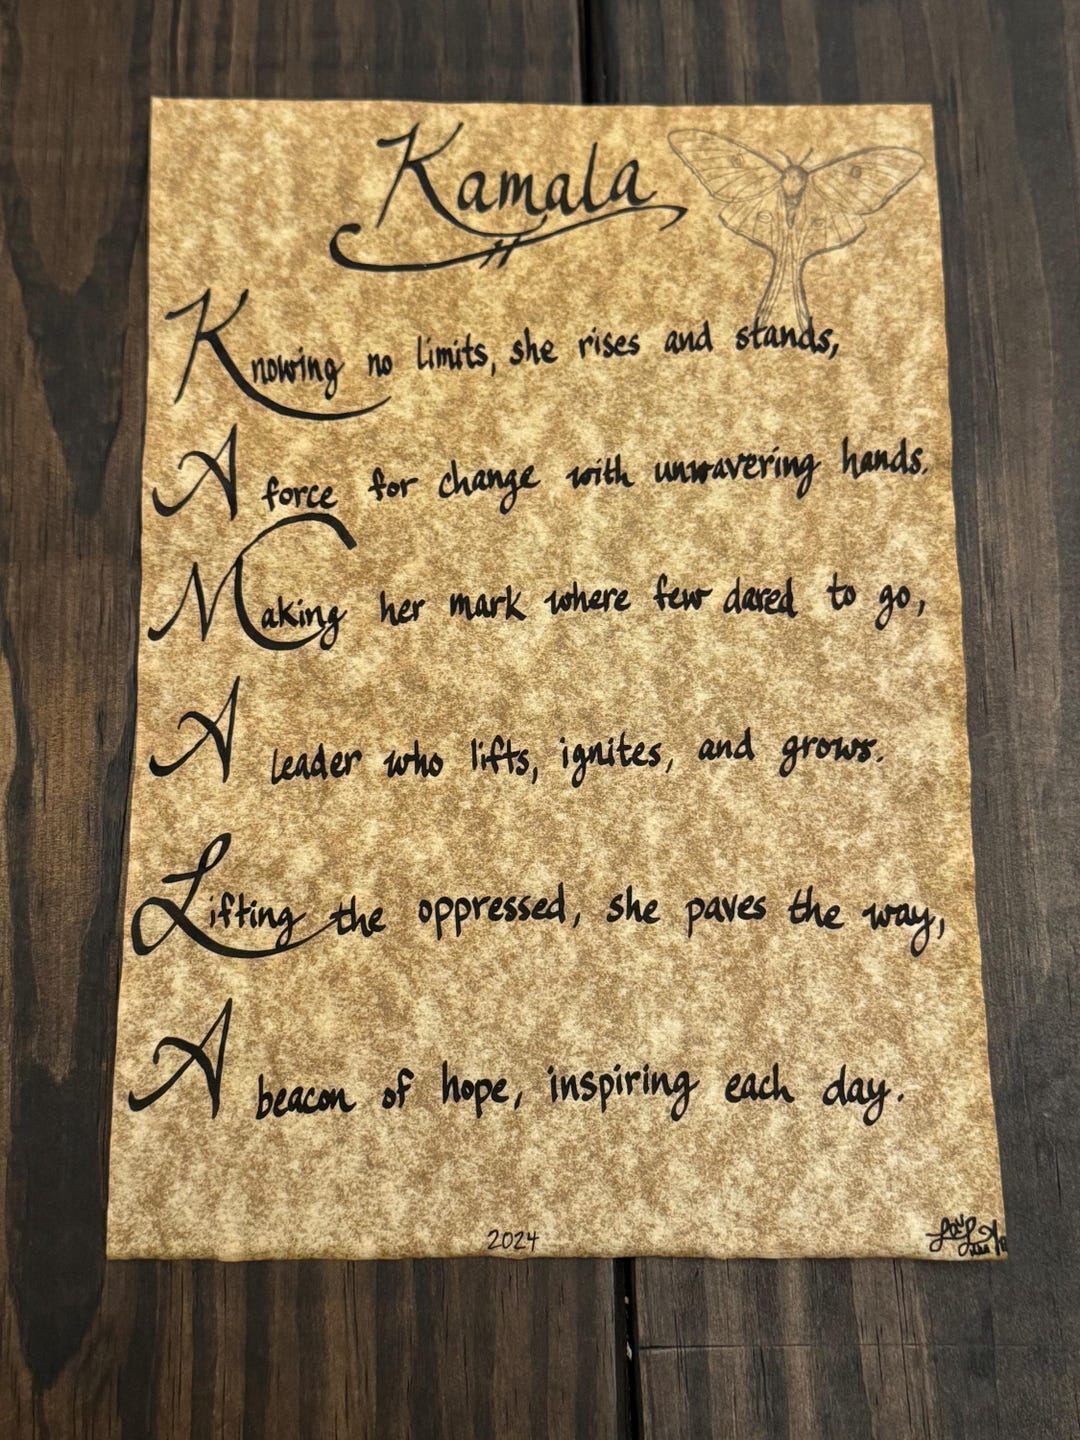 Kamala
Knowing no limits, she rises and stands,
A force for change with unwavering hands.
Making her mark where few dared to go,
A leader who lifts, ignites, and grows.
Lifting the oppressed, she paves the way,
A beacon of hope, inspiring each day.
2024